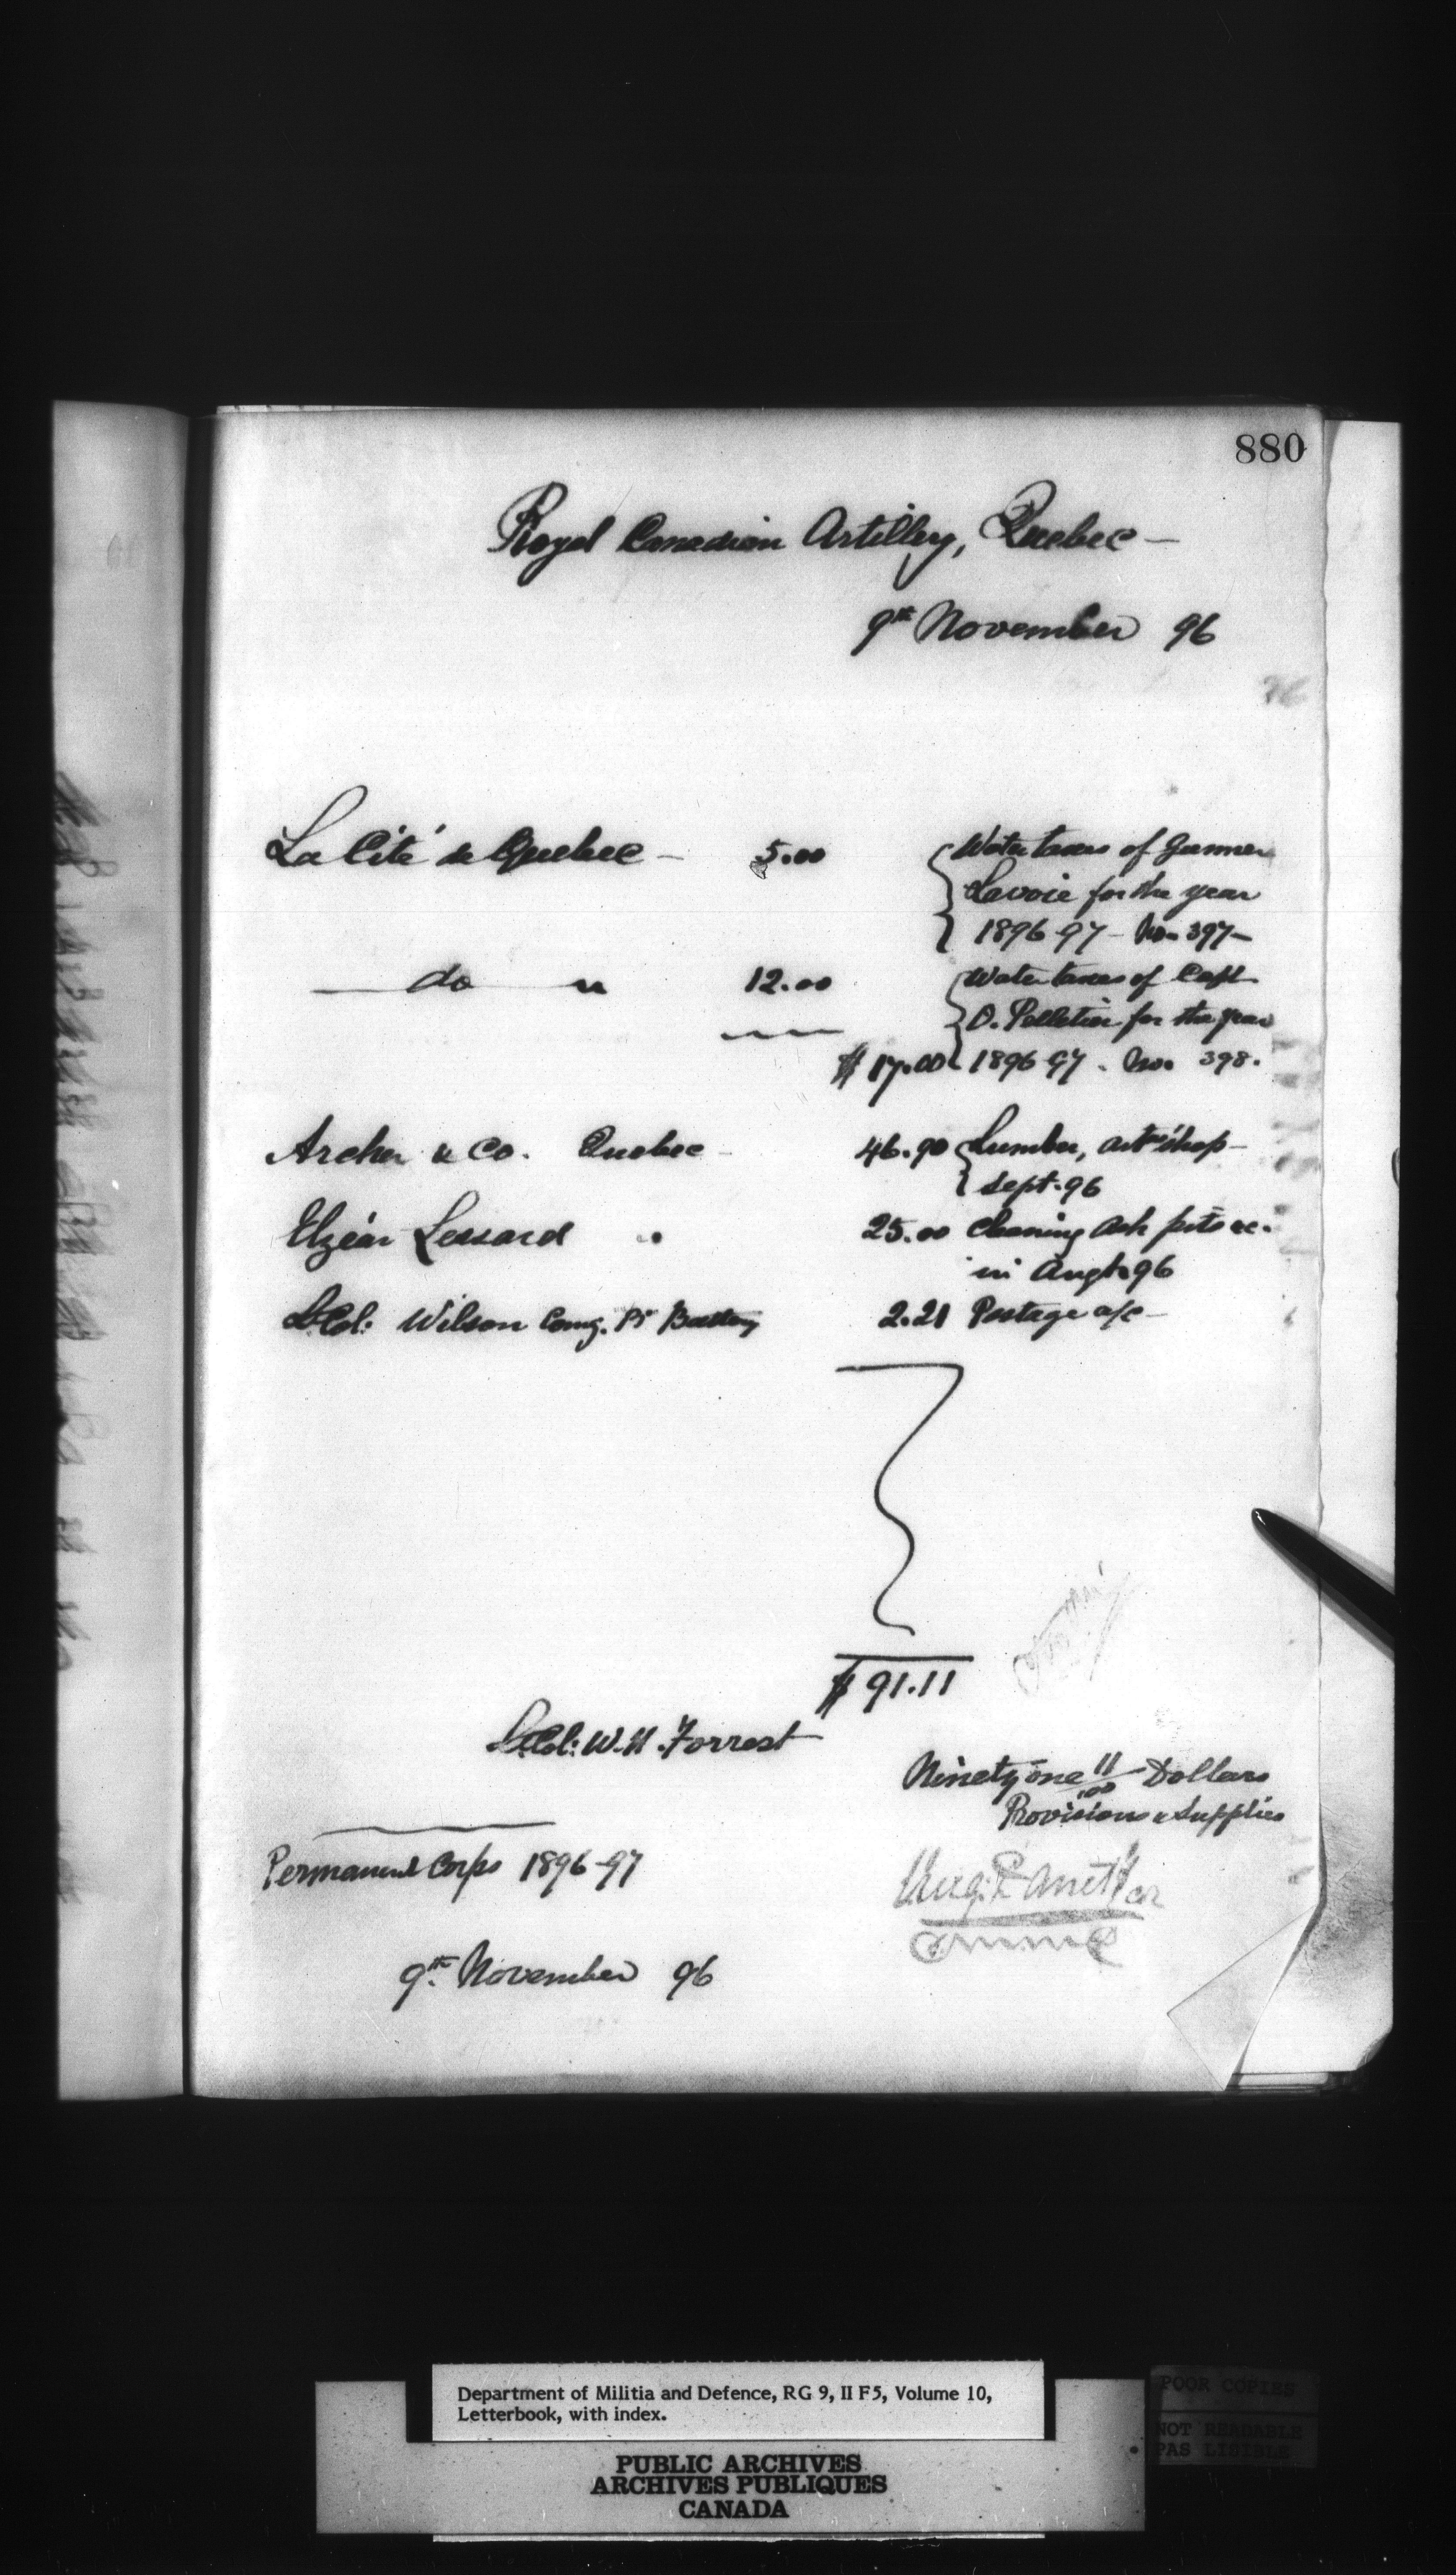 880
Royal Canadian Artillery, Quebec —
9th November 96
La Cité de Quebec — 5.00 Water taxes of Gunner
Lavoie for the year
1896-97 — No. 397 —
do " 12.00 Water taxes of Capt
O. Pelletier for the year
$17.00 1896-97. No. 398.
Archer & Co. Quebec — 46.90 Lumber, shop —
Sept. 96
Elzéar Lessard " 25.00 Cleaning ash pits &c.
in Augt. 96
Lt Col: Wilson Comg. "B" Battery 2.21 Postage a/c —
$91.11
Lt Col: W. H. Forrest
Ninety one 11/100 Dollars
Provisions & Supplies
Permanent Corps 1896-97
9th November 96
Department of Militia and Defence, RG 9, II F5, Volume 10,
Letterbook, with index.
PUBLIC ARCHIVES
ARCHIVES PUBLIQUES
CANADA
POOR COPIES
NOT READABLE
PAS LISIBLE